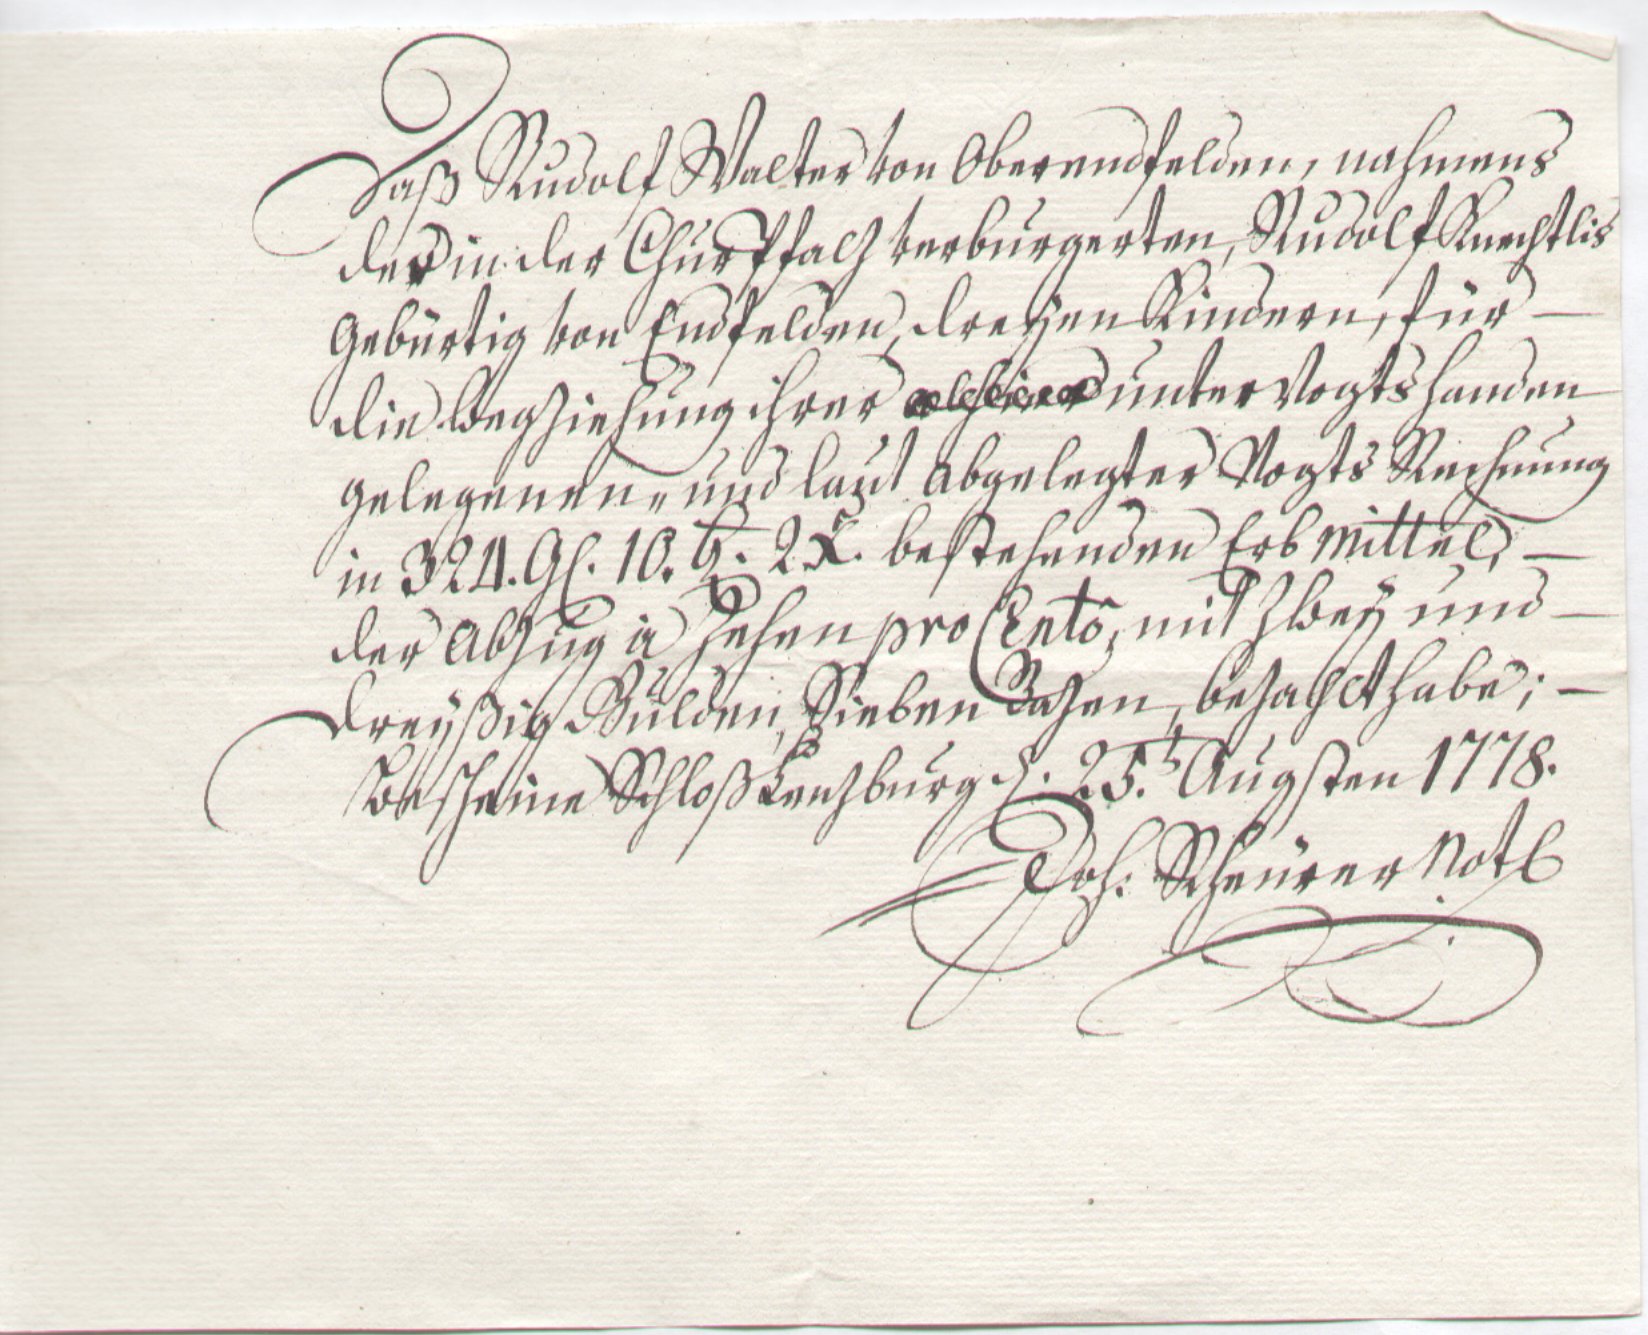 Daß Rudolf Walter von Oberendfelden, nahmens
der in der Churpfalz verburgerten, Rudolf Knechtlis
gebürtig von Endfelden, dreyen Kindern, für –
die Wegziehung ihrer unter Vogts handen
gelegenen, und laut abgelegter Vogts Rechnung
in 324. Gl. 10. bz. 2 x. bestehenden Erbmittel, –
der Abzug à Zehen pro Cento, mit zwey und –
dreyßig Gulden, Sieben Bazen, bezahlt habe; –
bescheine Schloß Lenzburg d. 25.t Augsten 1778.
Joh: Scheürer Not